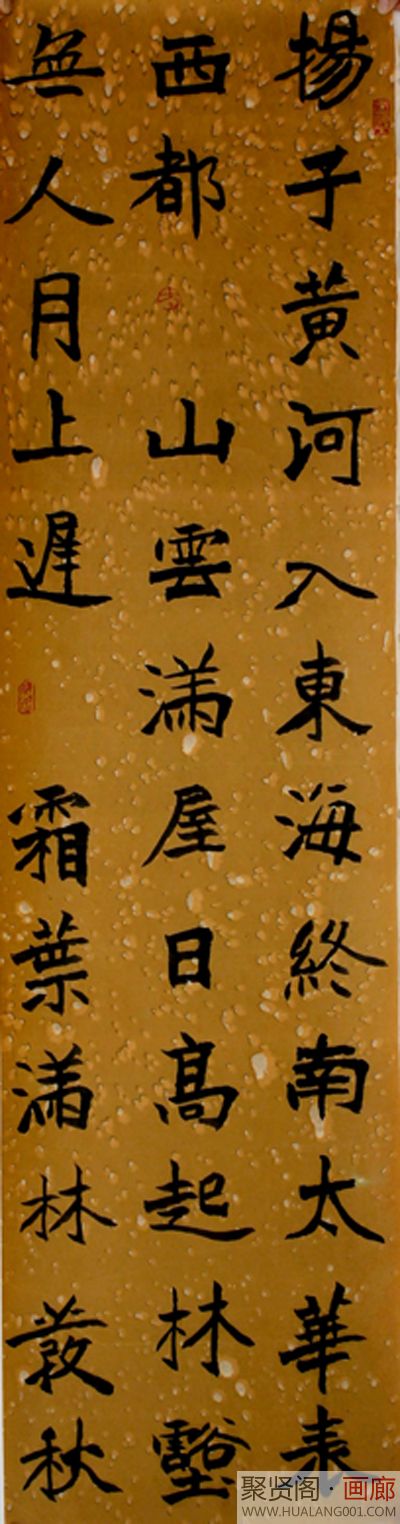 揚子黃河入東海終南太華表
西都 山雲滿屋日高起林壑
無人月上遲 霜葉滿林裝秋
聚贤阁·画廊
WWW.HUALANG001.COM